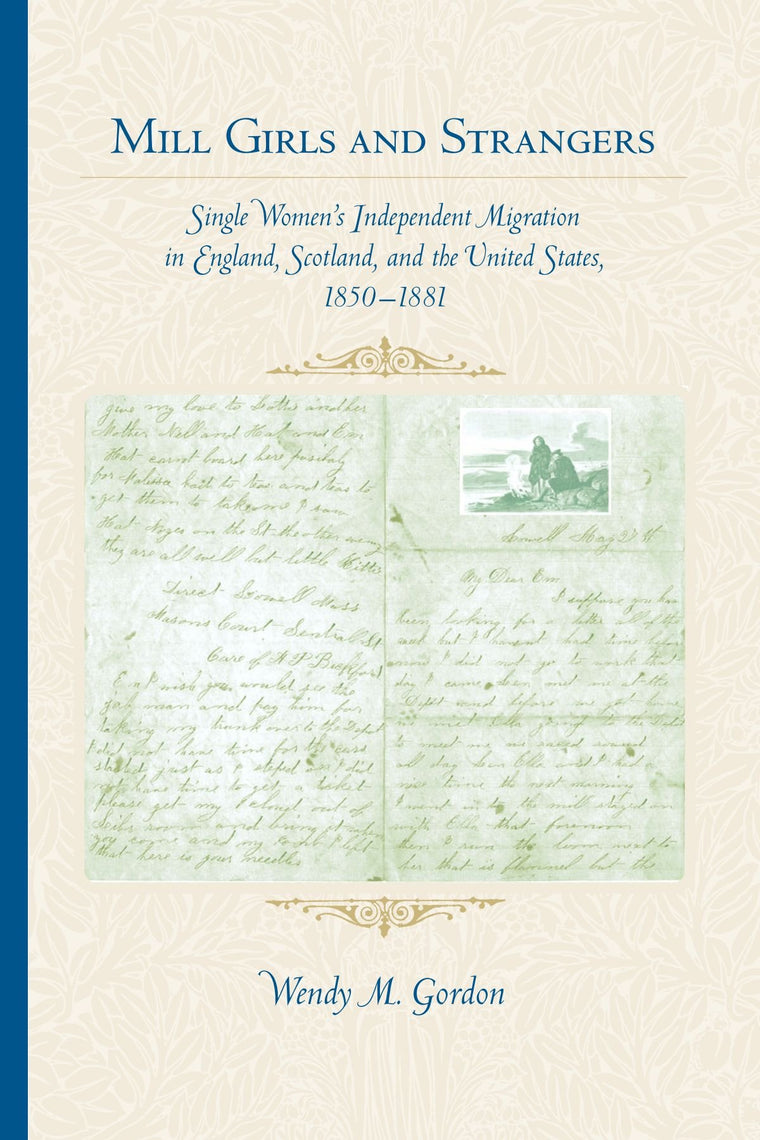 Mill Girls and Strangers
Single Women's Independent Migration
in England, Scotland, and the United States,
1850–1881
give my love to Lottie and her
Mother Nell and Hat and Em
Hat cannt board here posibly
for Malissa hait to teas and teas to
get them to take me I room
Hat Noyes on the St the other evening
they are all well but little Kittie
Direct Lowell Mass
Masons Court Sentral St
Care of H P Bickford
Em I wish you would see the
job man and pay him for
taking my trunk over to the Depot
I did not have time for the cars
started just as I steped on I did
not have time to get a ticket
please get my cloud out of
room and bring it when
you come and my comb I left
that here is your needles
Lowell May 27th
My Dear Em
I suppose you have
been looking for a letter all of this
week but I havent had time before
now I did not go to work that
day I came met me at the
Depot and before we got home
we met Ella going to the Depot
to meet me we raced around
all day Ella and I had a
nice time the next morning
I went in to the mill stayed in
with Ella that forenoon
then I run the loom next to
her that is flannel but the
Wendy M. Gordon